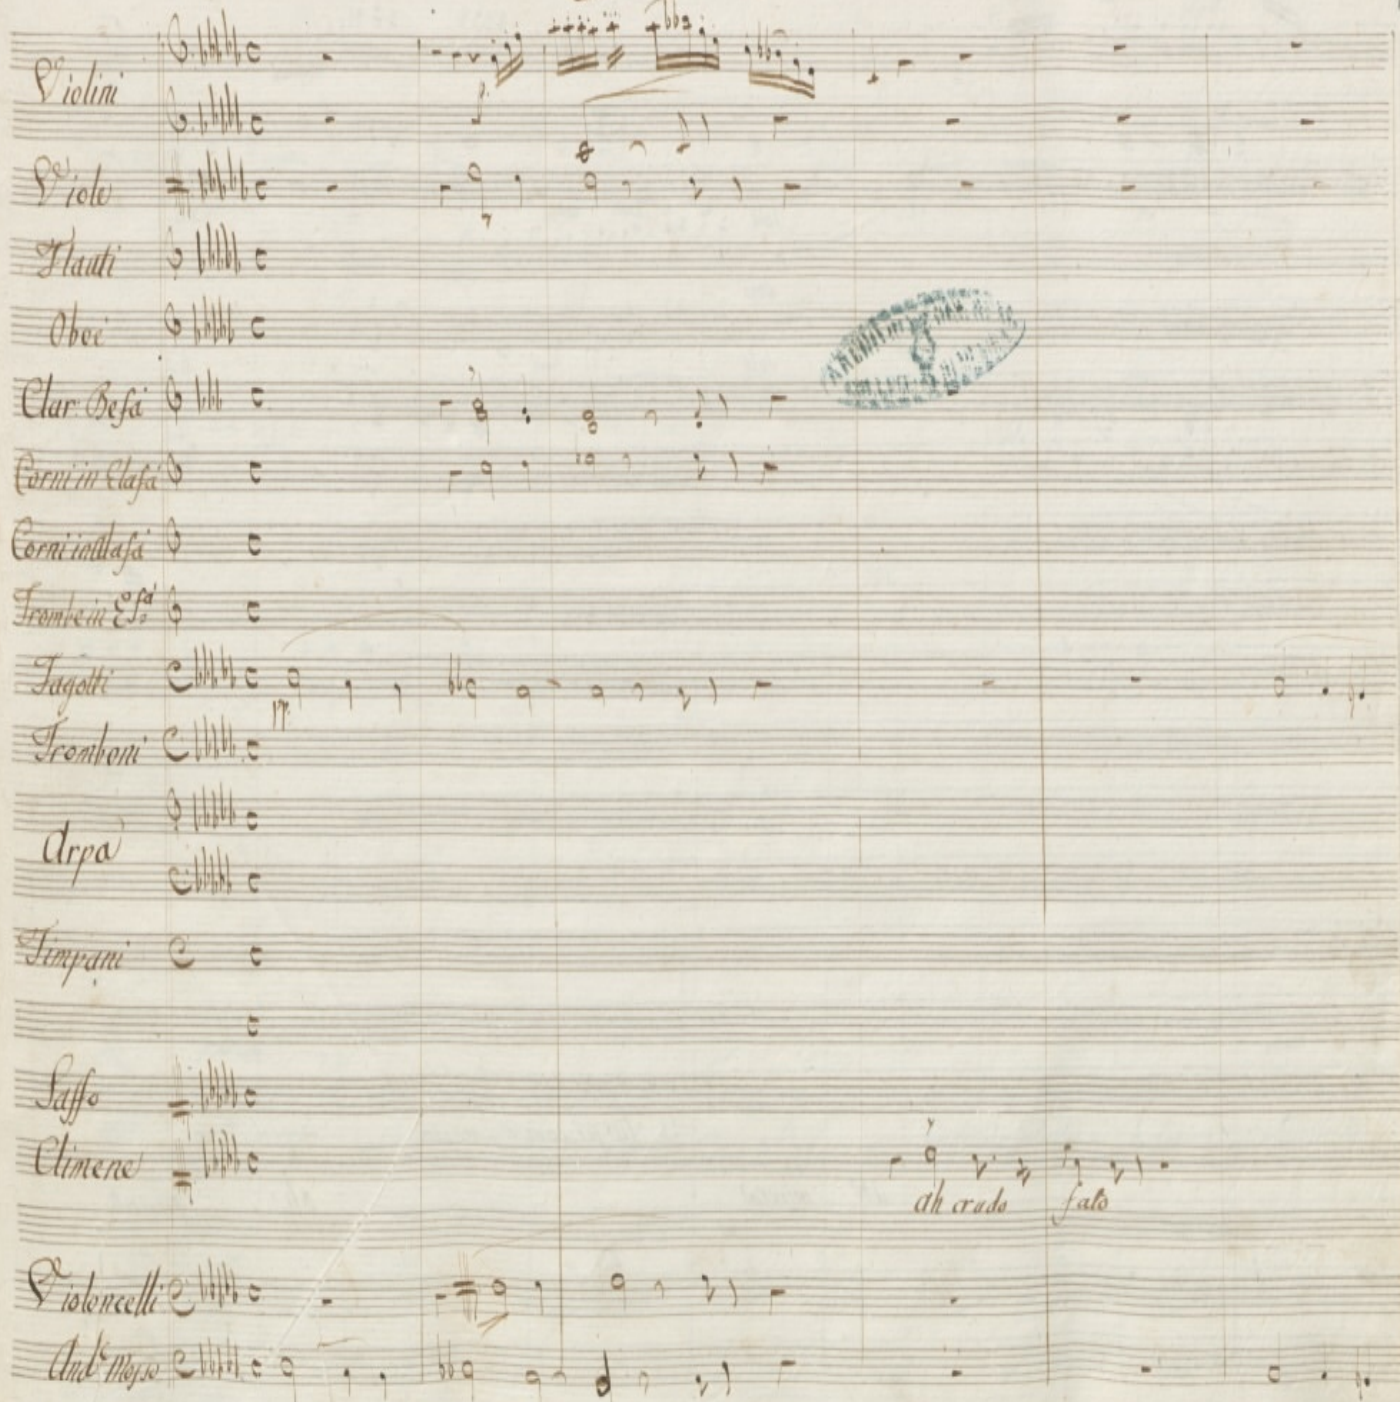 Violini
Viole
Flauti
Oboè
Clar: Befà
Corni in Elafà
Corni in Alafà
Trombe in
Fagotti
pp.
Tromboni
Arpa
Timpani
Saffo
Climene
ah crudo fato
Violoncelli
And.e Mosso